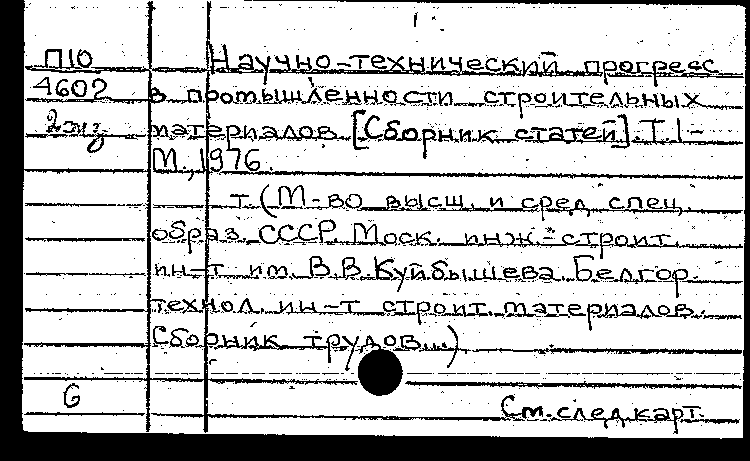 П10 Научно-технический прогресс
4602 в промышленности строительных
2экз материалов [Сборник статей]. Т.1-
М., 1976.
т. (М-во высш. и сред. спец.
образ. СССР. Моск. инж.-строит.
ин-т им. В.В.Куйбышева. Белгор.
технол. ин-т строит. материалов.
Сборник трудов...)
6 См. след. карт.